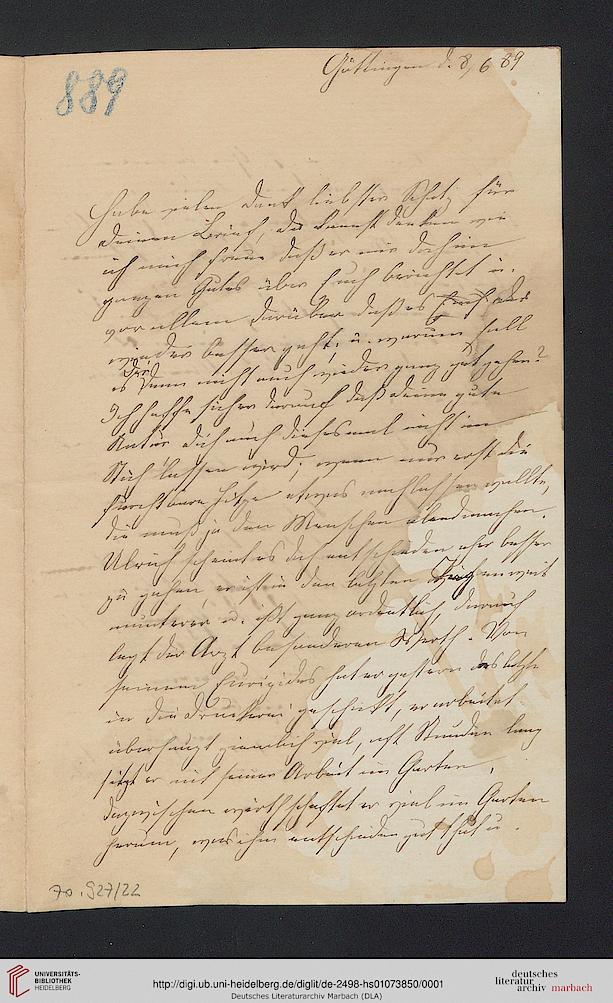 889
Göttingen d. 8/6 89
Habe vielen Dank liebster Schatz für
Deinen Brief, Du kannst denken wie
ich mich freue daß er mir doch ein
ganzen Gutes über Euch berichtet u.
vor allem darüber daß es
wieder besser geht, u. warum soll
es Dir denn nicht auch wieder ganz gut gehen?
Ich hoffe sicher darauf daß deine gute
Natur dich auch diesesmal nicht im
Stich lassen wird; wenn nur erst die
furchtbare Hitze etwas nachlassen wollte,
die muß ja den Menschen elend machen.
Ulrich scheint es doch entschieden eher besser
zu gehen er ist in den letzten Tagen weit
munterer u. ißt ganz ordentlich, darauf
legt der Arzt besonderen Werth. Von
seinem Euripides hat er gestern das letzte
in die Druckerei geschickt, er arbeitet
überhaupt ziemlich viel, acht Stunden lang
sitzt er mit seiner Arbeit im Garten,
dazwischen wirthschaftet er viel im Garten
herum, was ihm entschieden gut thut u.
70.927/22
UNIVERSITÄTS-
BIBLIOTHEK
HEIDELBERG
http://digi.ub.uni-heidelberg.de/diglit/de-2498-hs01073850/0001
Deutsches Literaturarchiv Marbach (DLA)
deutsches
literatur
archiv marbach